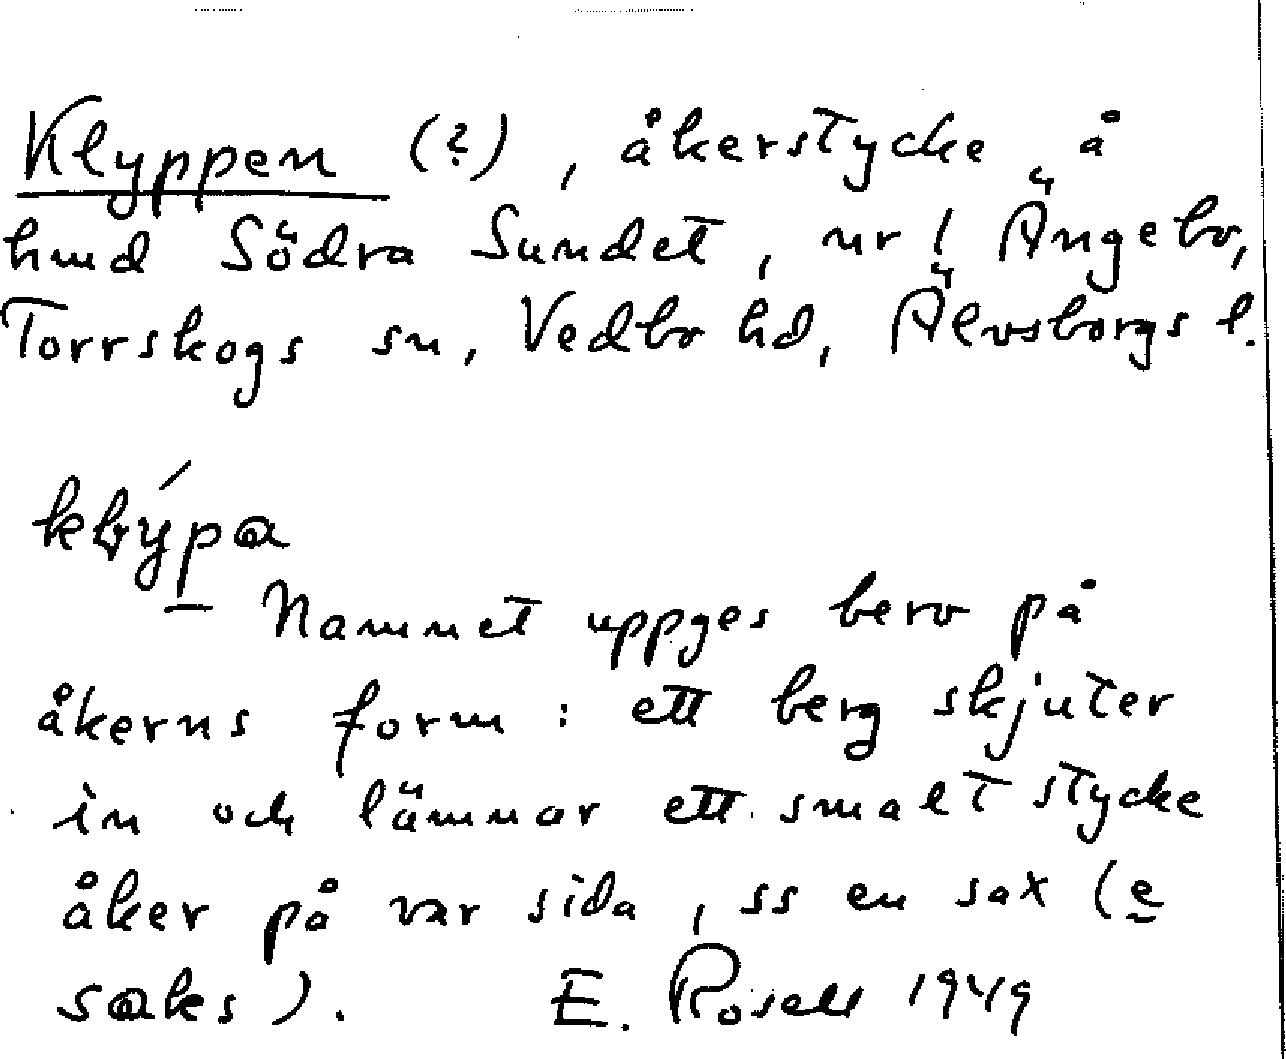 Klyppen (?), åkerstycke å
hmd Södra Sundet, nr 1 Ängebo,
Torrskogs sn, Vedbo hd, Älvsborgs l.
– Namnet uppges bero på
åkerns form: ett berg skjuter
in och lämnar ett smalt stycke
åker på var sida, ss en sax (e
saks). E. Rosell 1949